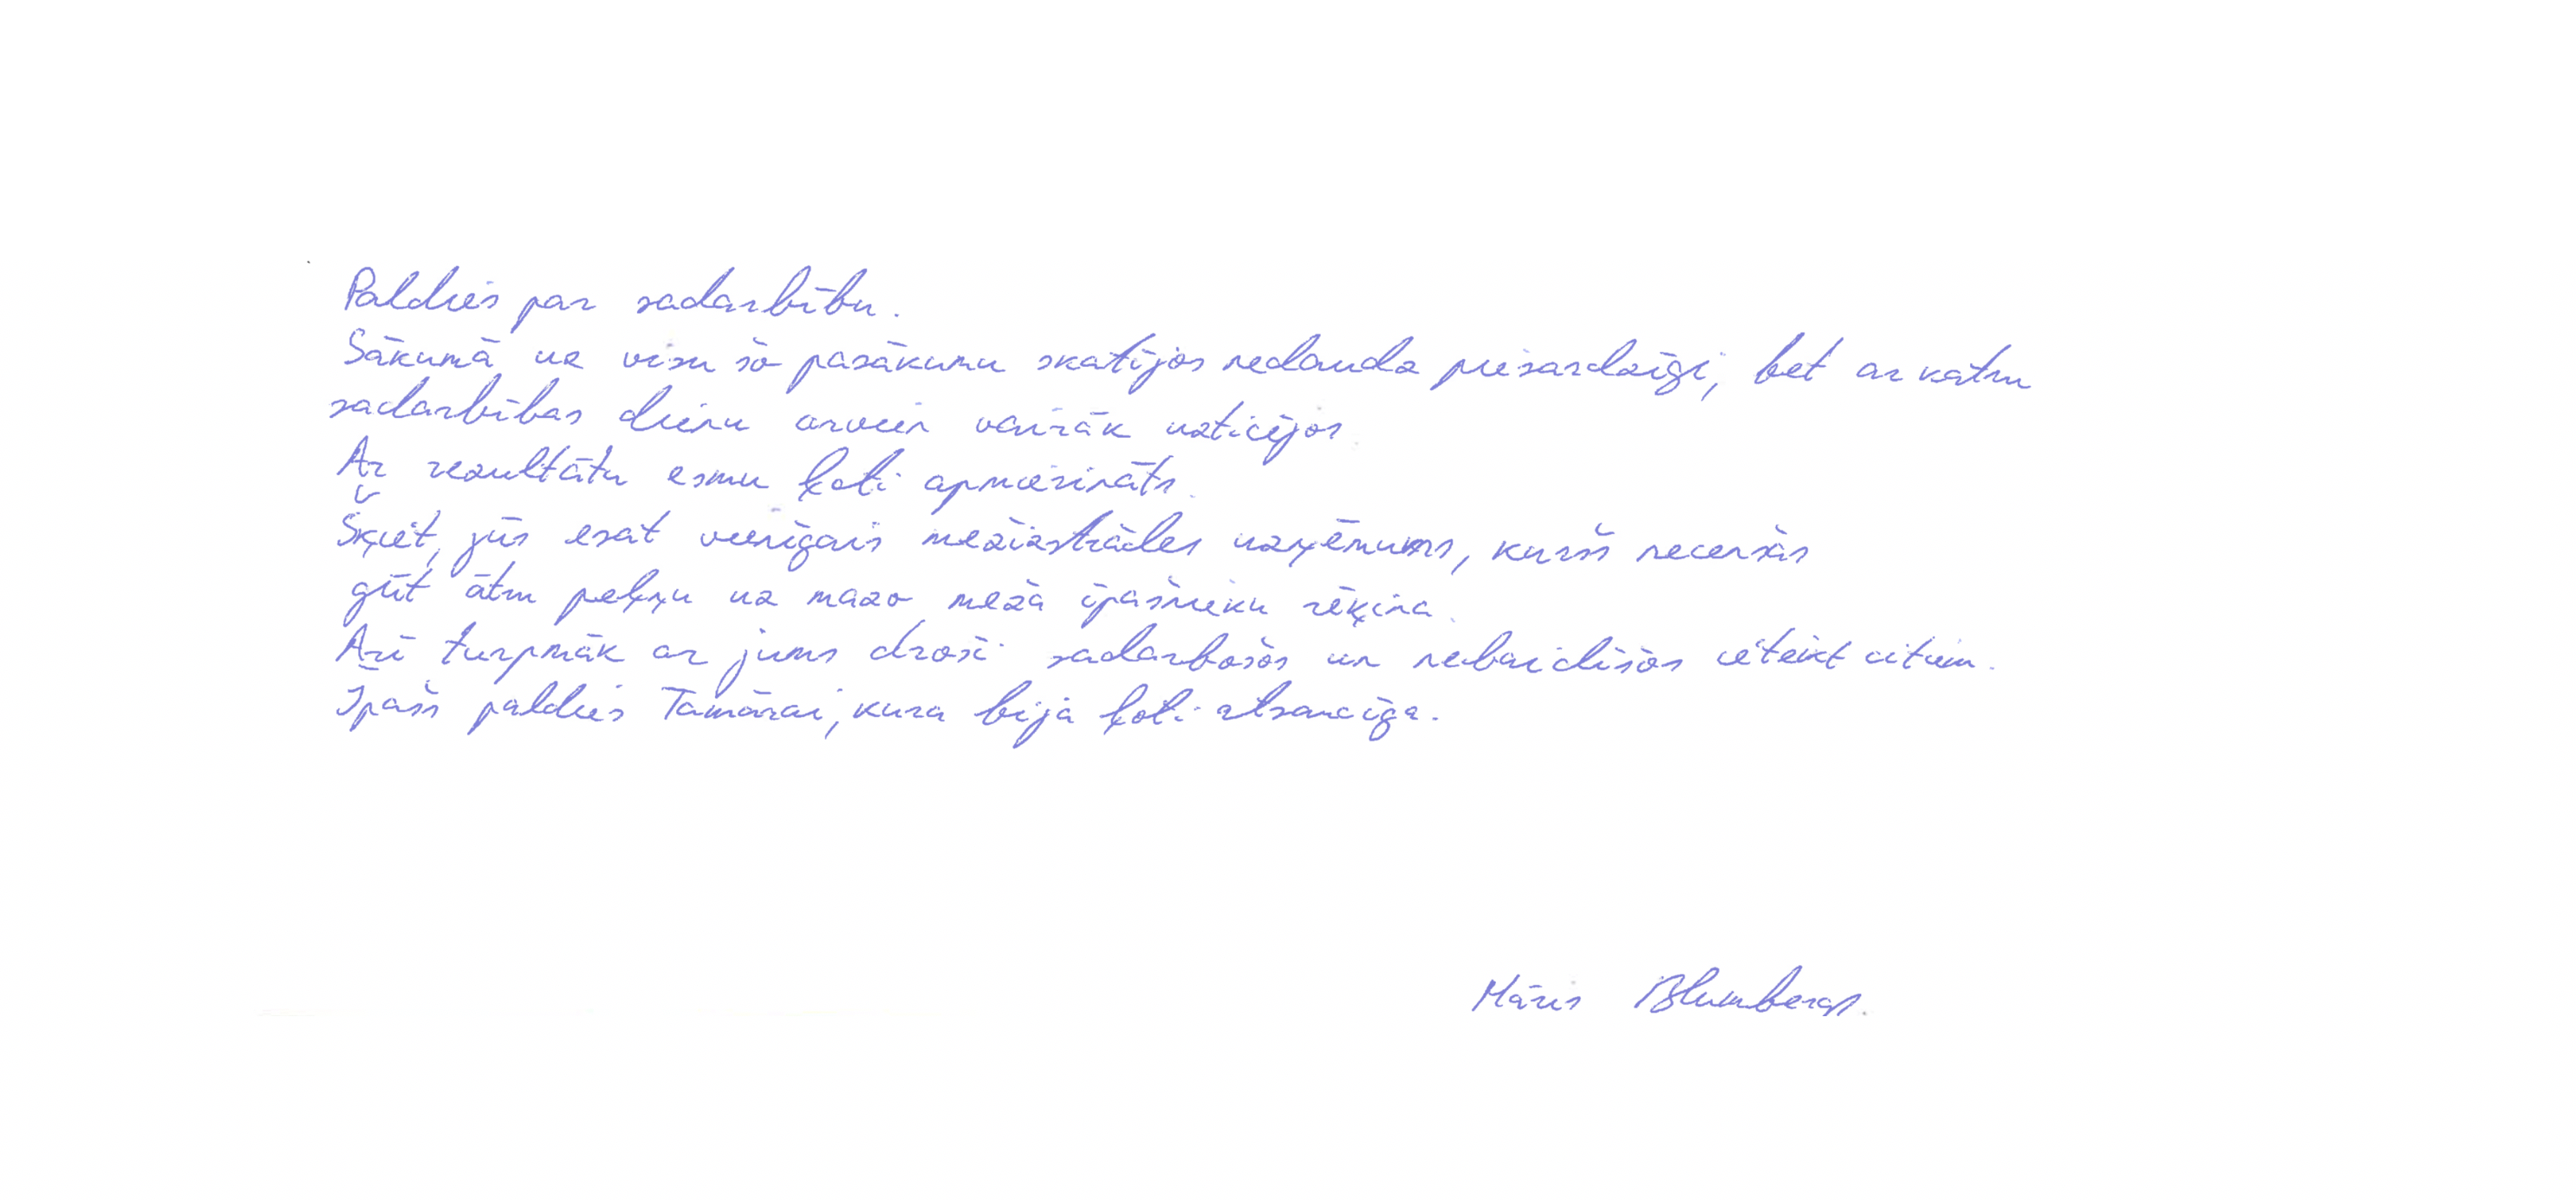 Paldies par sadarbību.
Sākumā uz visu šo pasākumu skatījos nedaudz piesardzīgi, bet ar katru
sadarbības dienu arvien vairāk uzticējos.
Ar rezultātu esmu ļoti apmierināts.
Šķiet, jūs esat vienīgais mežizstrādes uzņēmums, kurš necenšas
gūt ātru peļņu uz mazo meža īpašnieku rēķina.
Arī turpmāk ar jums droši sadarbošos un nebaidīšos ieteikt citiem.
Īpašs paldies Tamārai, kura bija ļoti atsaucīga.
Māris Blumbergs.